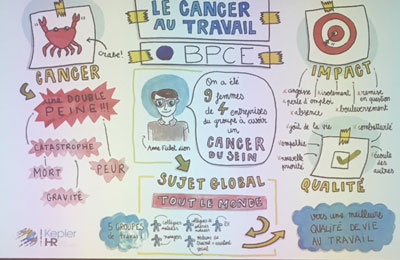 LE CANCER
AU TRAVAIL
BPCE
Crabe!
CANCER
une DOUBLE
PEINE!!!
CATASTROPHE
MORT
PEUR
GRAVITÉ
Kepler
HR
On a été
9 femmes
de 4 entreprises
du groupe à avoir
un
CANCER
DU SEIN
SUJET GLOBAL
TOUT LE MONDE
5 GROUPES
de travail
collègues
managers
IMPACT
angoisse
isolement
remise
en question
perte d'emploi
absence
bouleversement
goût de la vie
combativité
empathie
nouvelle
priorité
écoute
des
autres
QUALITÉ
vers une meilleure
QUALITÉ DE VIE
AU TRAVAIL